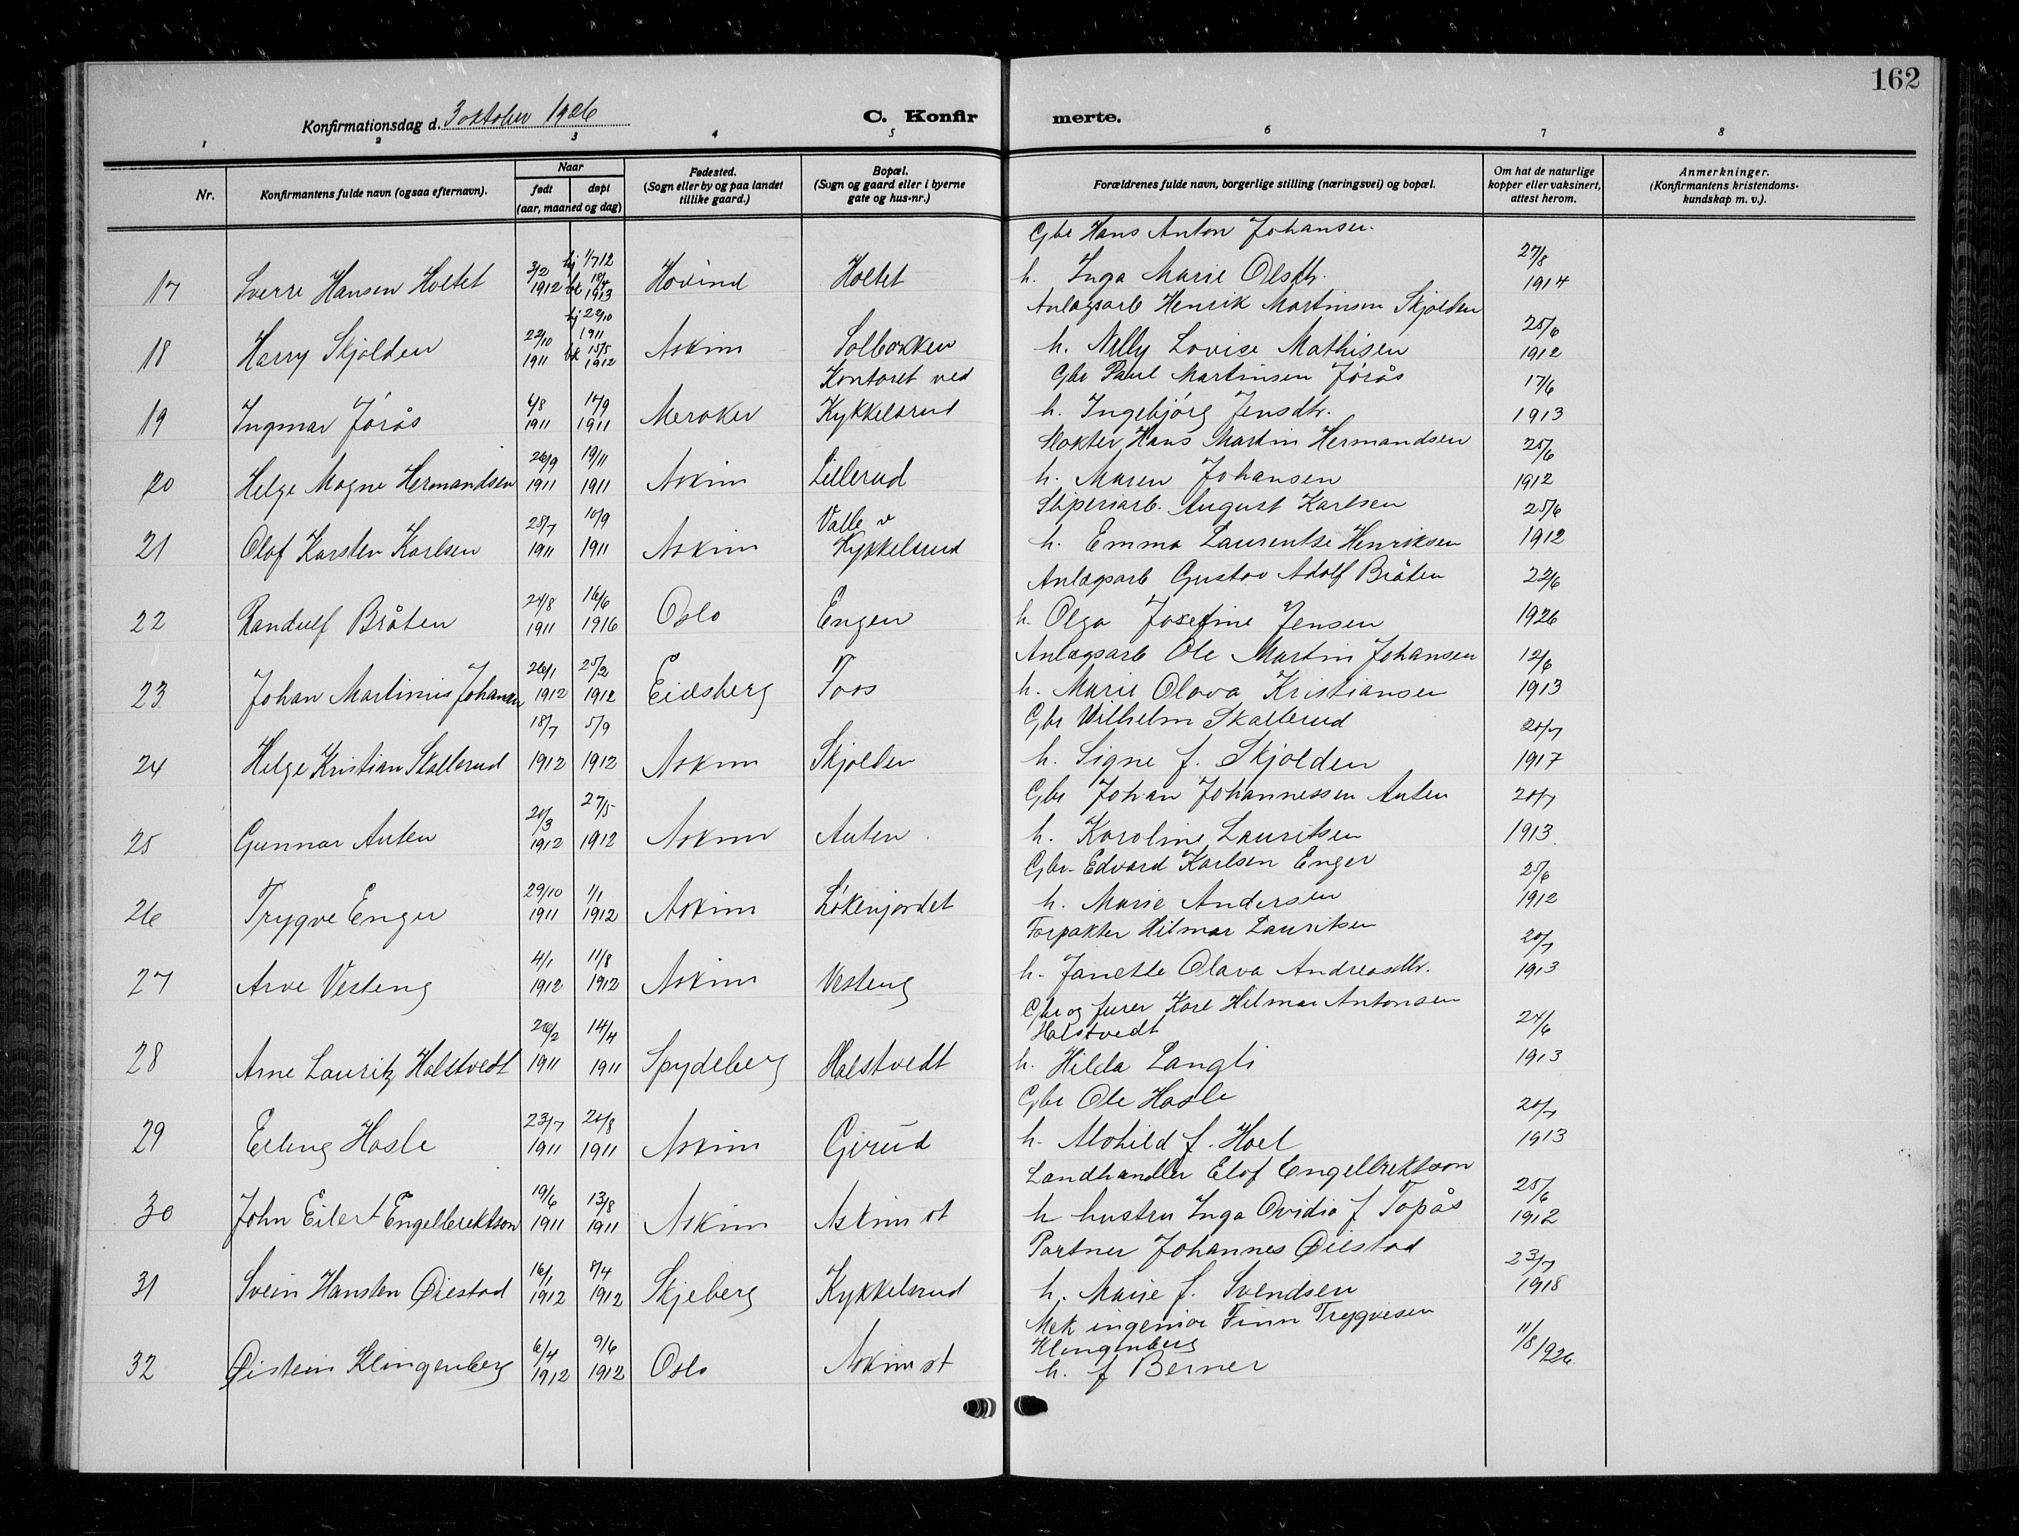 162
Konfirmationsdag d. 3 oktober 1926
C. Konfirmerte.
1 2 3 4 5 6 7 8
Nr. Konfirmantens fulde navn (ogsaa efternavn). Naar født døpt (aar, maaned og dag) Fødested. (Sogn eller by og paa landet tillike gaard.) Bopæl. (Sogn og gaard eller i byerne gate og hus-nr.) Forældrenes fulde navn, borgerlige stilling (næringsvei) og bopæl. Om hat de naturlige kopper eller vaksinert, attest herom. Anmerkninger. (Konfirmantens kristendomskundskap m. v.).
Gbr Hans Anton Johansen.
17 Sverre Hansen Holtet 3/2 1912 hj 1/7 12 bk 18/4 1913 Hovind Holtet h. Inga Marie Olsdtr. 27/8 1914
Anlægsarb Henrik Martinsen Skjolden
18 Harry Skjolden 22/10 1911 hj 22/10 1911 bk 15/5 1912 Askim Solbakken h. Nelly Lovise Mathisen 25/6 1912
Kontoret ved Gbr Paul Martinsen Jørås
19 Ingmar Jørås 6/8 1911 17/9 1911 Meraker Kykkelsrud h. Ingebjørg Jensdtr. 17/6 1913
Slakter Hans Martin Hermandsen
20 Helge Magne Hermandsen 26/9 1911 19/11 1911 Askim Lillerud h. Maren Johansen 25/6 1912
Sliperiarb. August Karlsen
21 Olaf Karsten Karlsen 28/7 1911 10/9 1911 Askim Valle v Kykkelsrud h. Emma Laurentse Henriksen 25/6 1912
Anlægsarb Gustav Adolf Bråten
22 Randulf Bråten 24/8 1911 16/6 1916 Oslo Engen h. Olga Josefine Jensen 22/6 1926
Anlægsarb Ole Martin Johansen
23 Johan Martinius Johansen 26/1 1912 25/2 1912 Eidsberg Foos h. Marie Olava Kristiansen 12/6 1913
Gbr Vilhelm Skallerud
24 Helge Kristian Skallerud 18/7 1912 5/9 1912 Askim Skjolden h. Signe f. Skjolden 20/7 1917
Gbr Johan Johannessen Auten
25 Gunnar Auten 20/3 1912 27/5 1912 Askim Auten h. Karoline Lauritsen 20/7 1913.
Gbr. Edvard Karlsen Enger
26 Trygve Enger 29/10 1911 1/1 1912 Askim Løkenjordet h. Marie Andersen 25/6 1912
Forpakter Hilmar Lauritsen
27 Arve Vesteng 4/1 1912 11/8 1912 Askim Vesteng h. Janette Olava Andreasdtr. 20/7 1913
Gbr og furer Karl Hilmar Antonsen
Halstvedt
28 Arne Lauritz Halstvedt 26/2 1911 14/4 1911 Spydeberg Halstvedt h. Hilda Langli 24/6 1913
Gbr Ole Hasle
29 Erling Hasle 23/7 1911 20/8 1911 Askim Gjrud h. Alvhild f. Hoel 20/7 1913
Landhandler Elof Engelbrektson
30 John Eilert Engelbrektson 19/6 1911 13/8 1911 Askim Askim st h hustru Inga Ovidia f Topås 25/6 1912
Portner Johannes Øiestad
31 Svein Hansten Øiestad 16/1 1912 8/4 1912 Skjeberg Kykkelsrud h. Marie f. Svendsen 23/7 1918
Mek ingeniør Finn Trygvesen
Klingenberg
32 Øistein Klingenberg 6/4 1912 9/6 1912 Oslo Askim st h. f Berner 11/8 1926